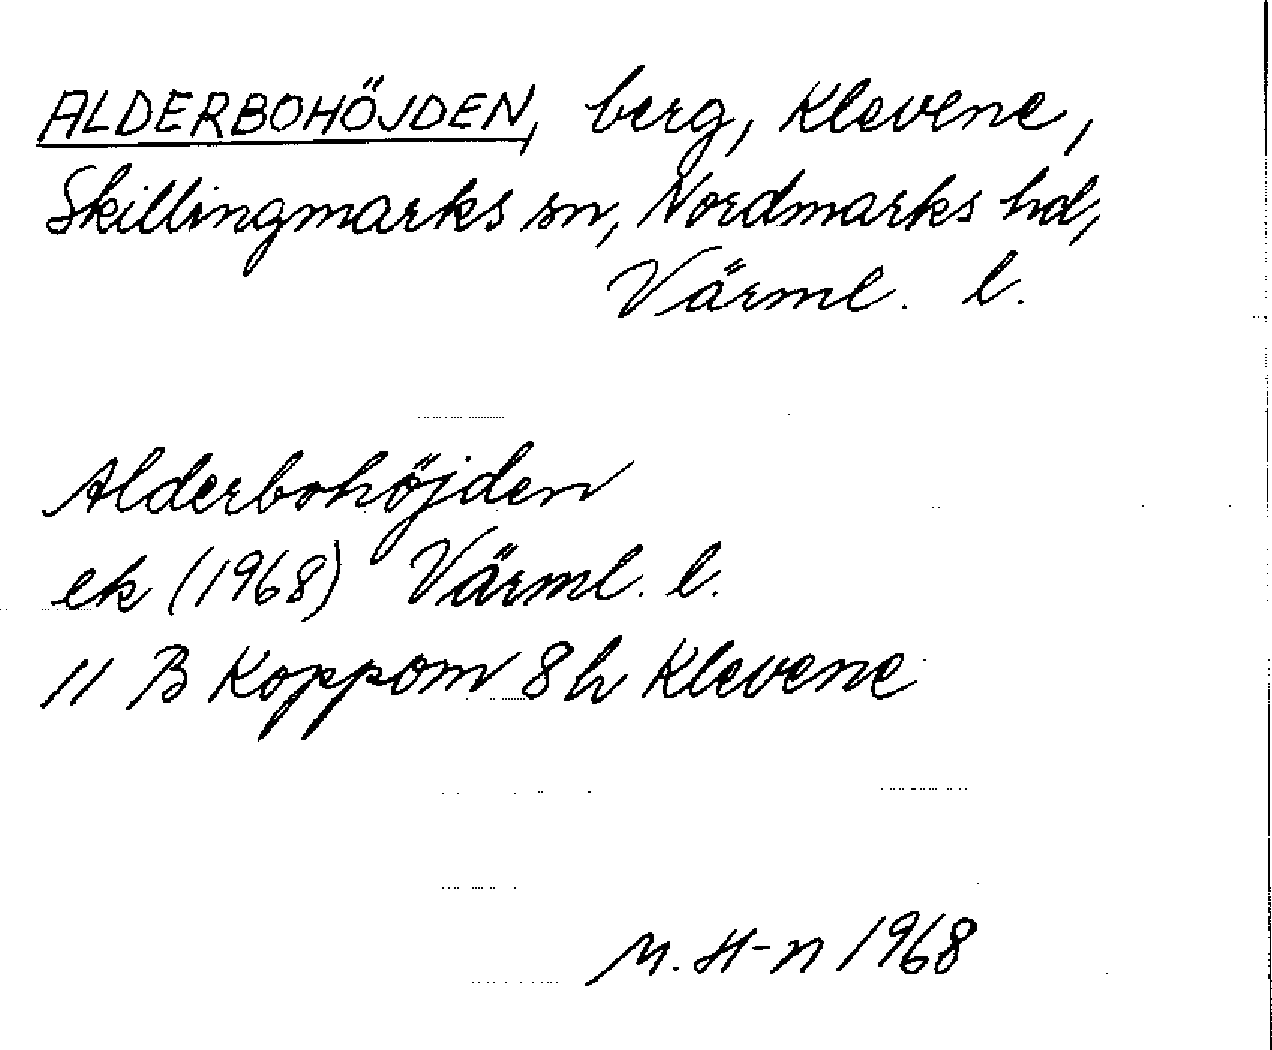 ALDERBOHÖJDEN, berg, Klevene,
Skillingmarks sn, Nordmarks hd,
Värml. l.
Alderbohöjden
ek (1968) Värml. l.
11 B Koppom 8h Klevene
M. H-n 1968